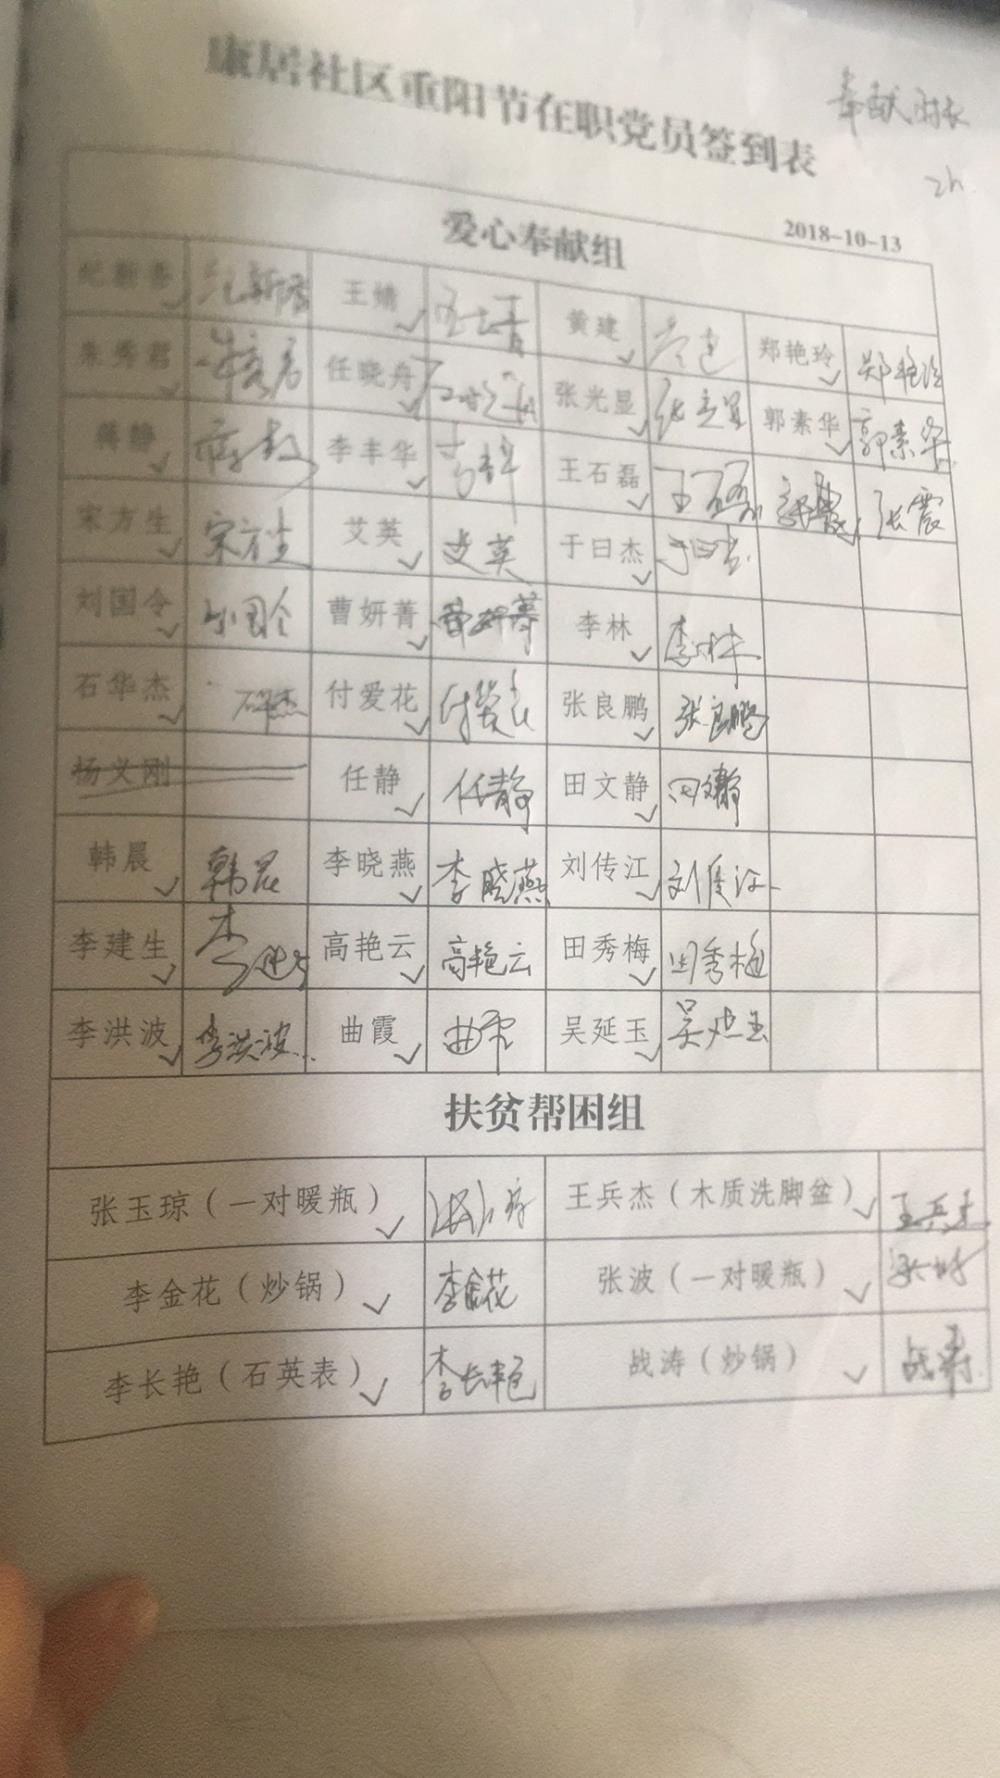 康居社区重阳节在职党员签到表
奉献时长
2h
爱心奉献组 2018-10-13
纪新香 纪新香 王婧 王婧 黄建 黄建 郑艳玲 郑艳玲
朱秀君 朱秀君 任晓舟 任晓舟 张光显 张光显 郭素华 郭素华
蒋静 李丰华 王石磊 王石磊 张震
宋方生 宋方生 艾英 艾英 于曰杰 于曰杰
刘国令 刘国令 曹妍菁 曹妍菁 李林 李林
石华杰 石华杰 付爱花 付爱花 张良鹏 张良鹏
杨义刚 任静 任静 田文静 田文静
韩晨 韩晨 李晓燕 李晓燕 刘传江 刘传江
李建生 李建生 高艳云 高艳云 田秀梅 田秀梅
李洪波 李洪波 曲霞 曲霞 吴延玉 吴延玉
扶贫帮困组
张玉琼（一对暖瓶） 王兵杰（木质洗脚盆） 王兵杰
李金花（炒锅） 李金花 张波（一对暖瓶）
李长艳（石英表） 李长艳 战涛（炒锅） 战涛